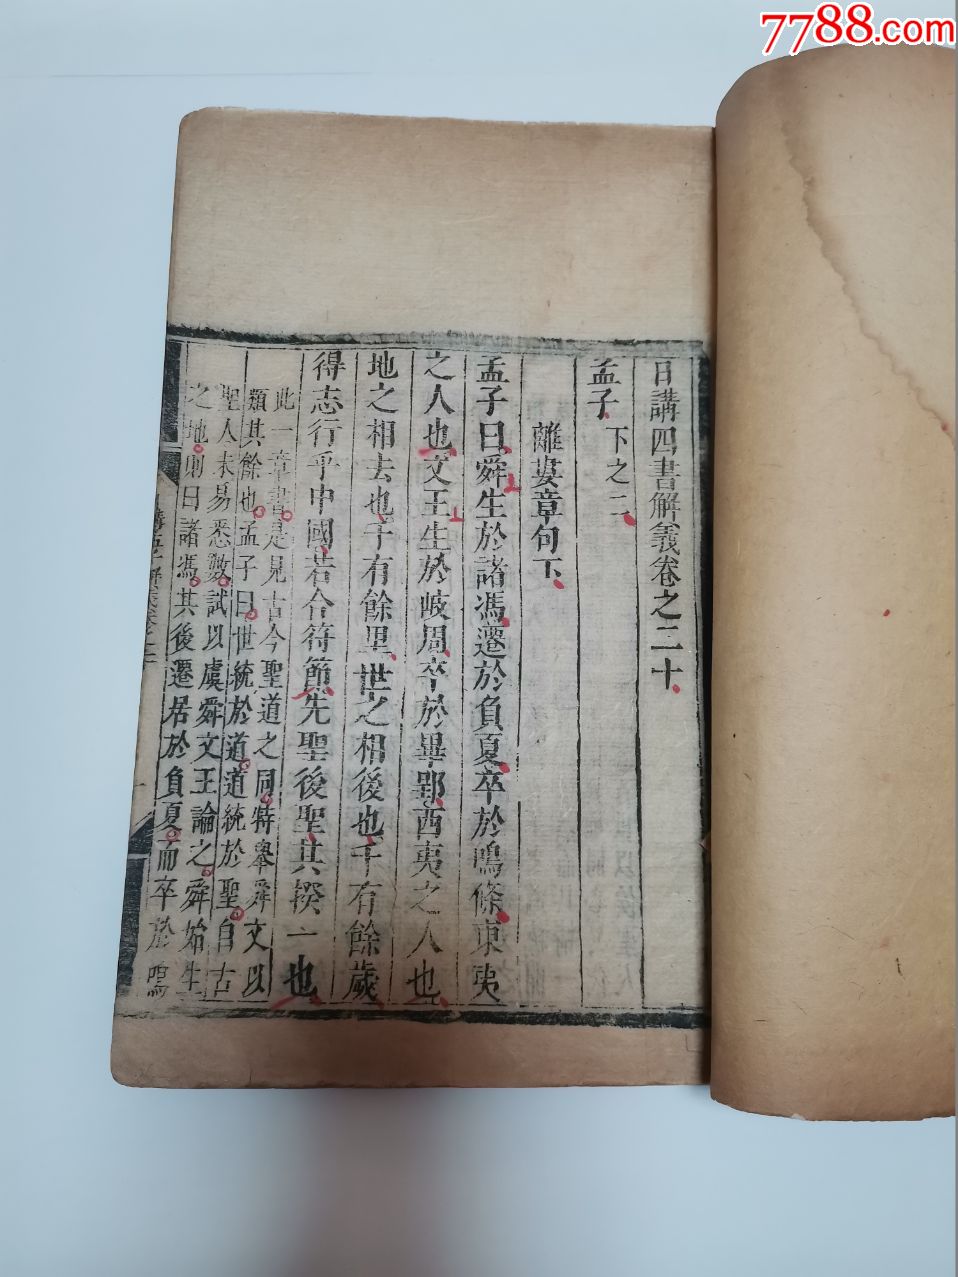 7788.com
日講四書解義卷之二十
孟子下之二
離婁章句下
孟子曰舜生於諸馮遷於負夏卒於鳴條東夷
之人也文王生於岐周卒於畢郢西夷之人也
地之相去也千有餘里世之相後也千有餘歲
得志行乎中國若合符節先聖後聖其揆一也
此一章書是見古今聖道之同特舉舜文以
類其餘也孟子曰世統於道道統於聖自古
聖人未易悉數試以虞舜文王論之舜始生
之地則曰諸馮其後遷居於負夏而卒於鳴